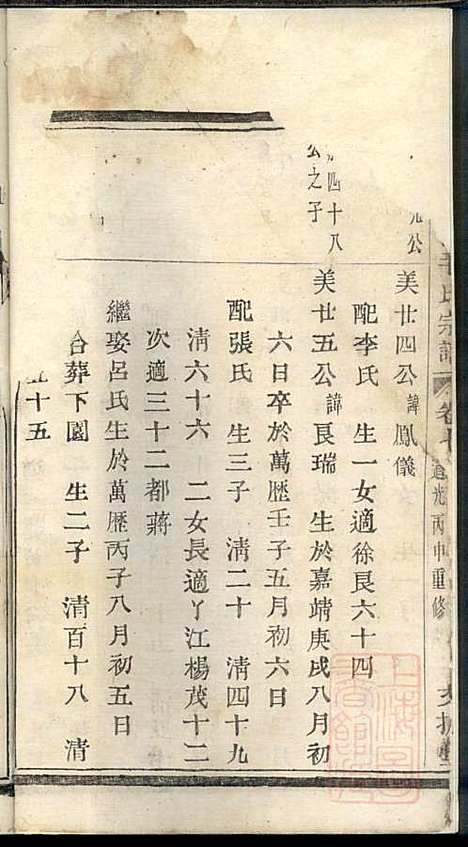 氏宗譜 卷 道光丙申重修
公
美廿四公諱鳳儀
配李氏 生一女適徐艮六十四
四十八
公之子
美廿五公諱艮瑞 生於嘉靖庚戌八月初
六日卒於萬歷壬子五月初六日
配張氏 生三子 清二十 清四十九
清六十六 二女長適丫江楊茂十二
次適三十二都蔣
繼娶呂氏生於萬歷丙子八月初五日
合葬下園 生二子 清百十八 清
五十五